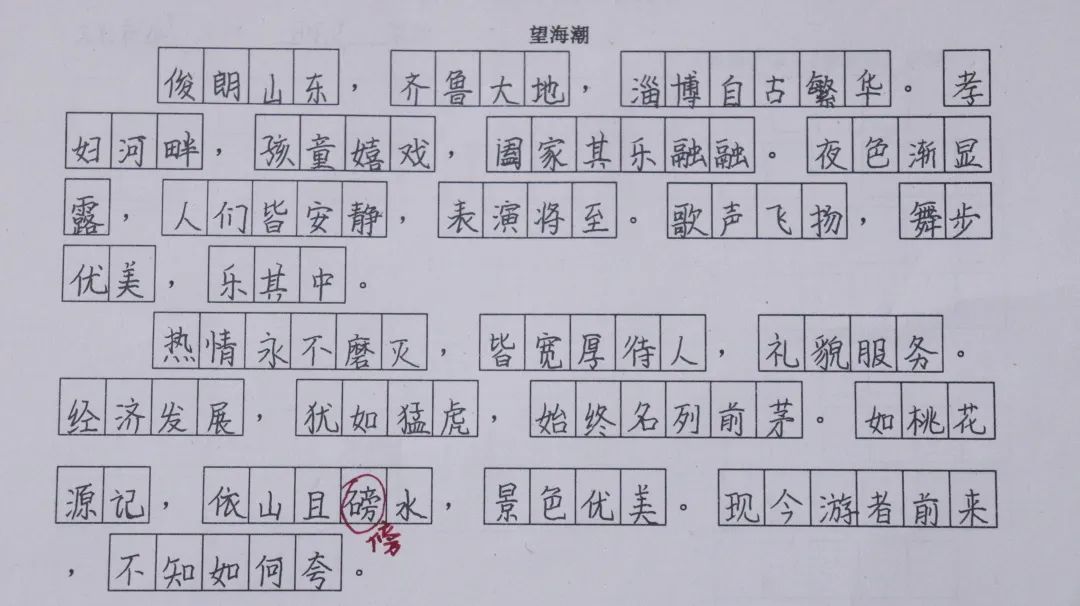 望海潮
俊朗山东，齐鲁大地，淄博自古繁华。孝
妇河畔，孩童嬉戏，阖家其乐融融。夜色渐显
露，人们皆安静，表演将至。歌声飞扬，舞步
优美，乐其中。
热情永不磨灭，皆宽厚待人，礼貌服务。
经济发展，犹如猛虎，始终名列前茅。如桃花
源记，依山且磅水，景色优美。现今游者前来
傍
，不知如何夸。